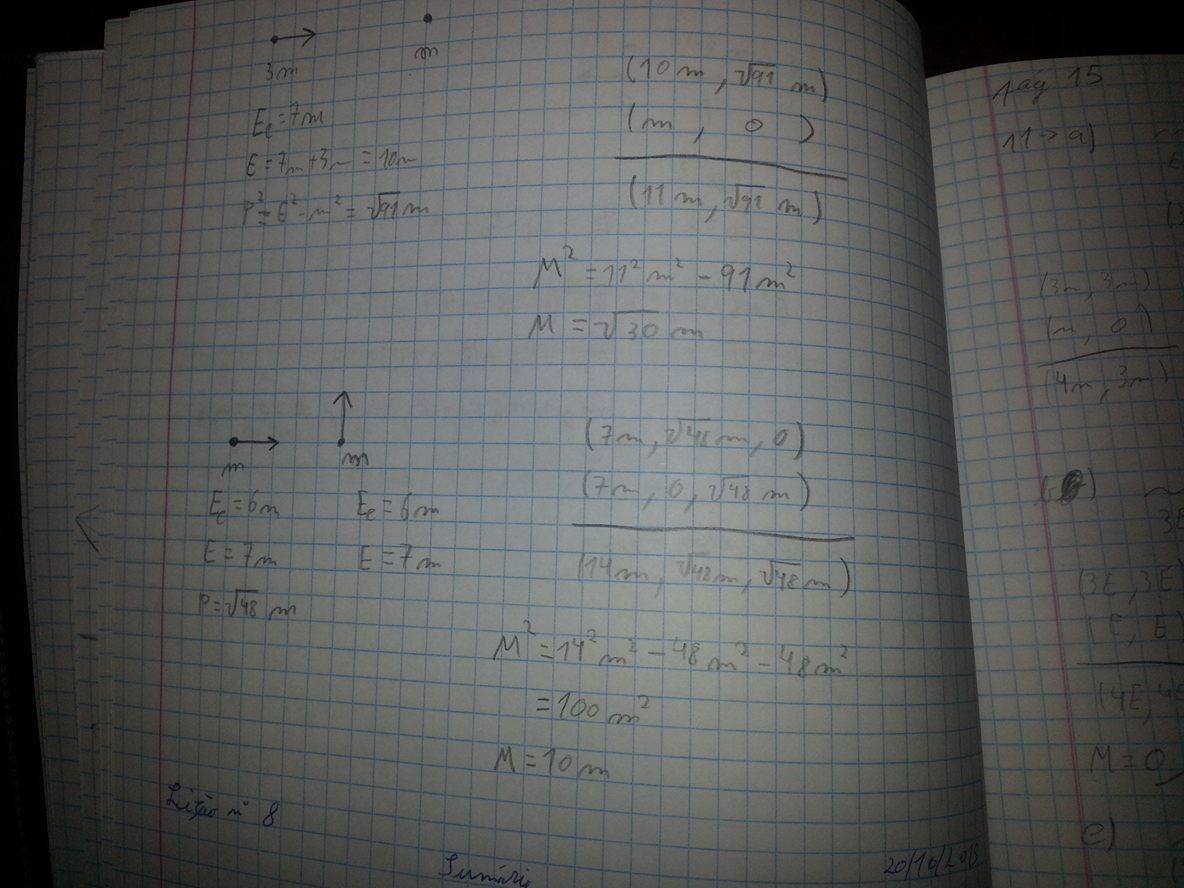 3m
m
E_c = 7m
E = 7m + 3m = 10m
P² = E² - m² = √91 m
(10m, √91 m)
(m, 0)
(11m, √91 m)
M² = 11² m² - 91 m²
M = √30 m
m
m
E_c = 6m
E_c = 6m
E = 7m
E = 7m
P = √48 m
(7m, √48 m, 0)
(7m, 0, √48 m)
(14m, √48 m, √48 m)
M² = 14² m² - 48 m² - 48 m²
= 100 m²
M = 10m
Lição nº 8
Sumário
pag 15
11 → a)
(3m, 3m)
(m, 0)
(4m, 3m)
(3E, 3E)
(E, E)
(4E, 4E
M = 0
e)